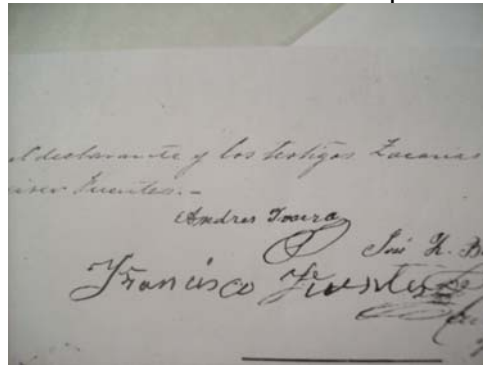 el declarante y los testigos Zacarias
Fuentes.-
Andres
José
Francisco Fuentes